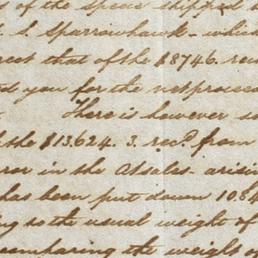 of the Specie shipped
S. Sparrowhawk - which
that of the $8746. rec
you for the net proceed
There is however so
the $13.624. 3. recd from
in the Atselas - arisin
has been put down 10.84
to the usual weight of
comparing the weight of